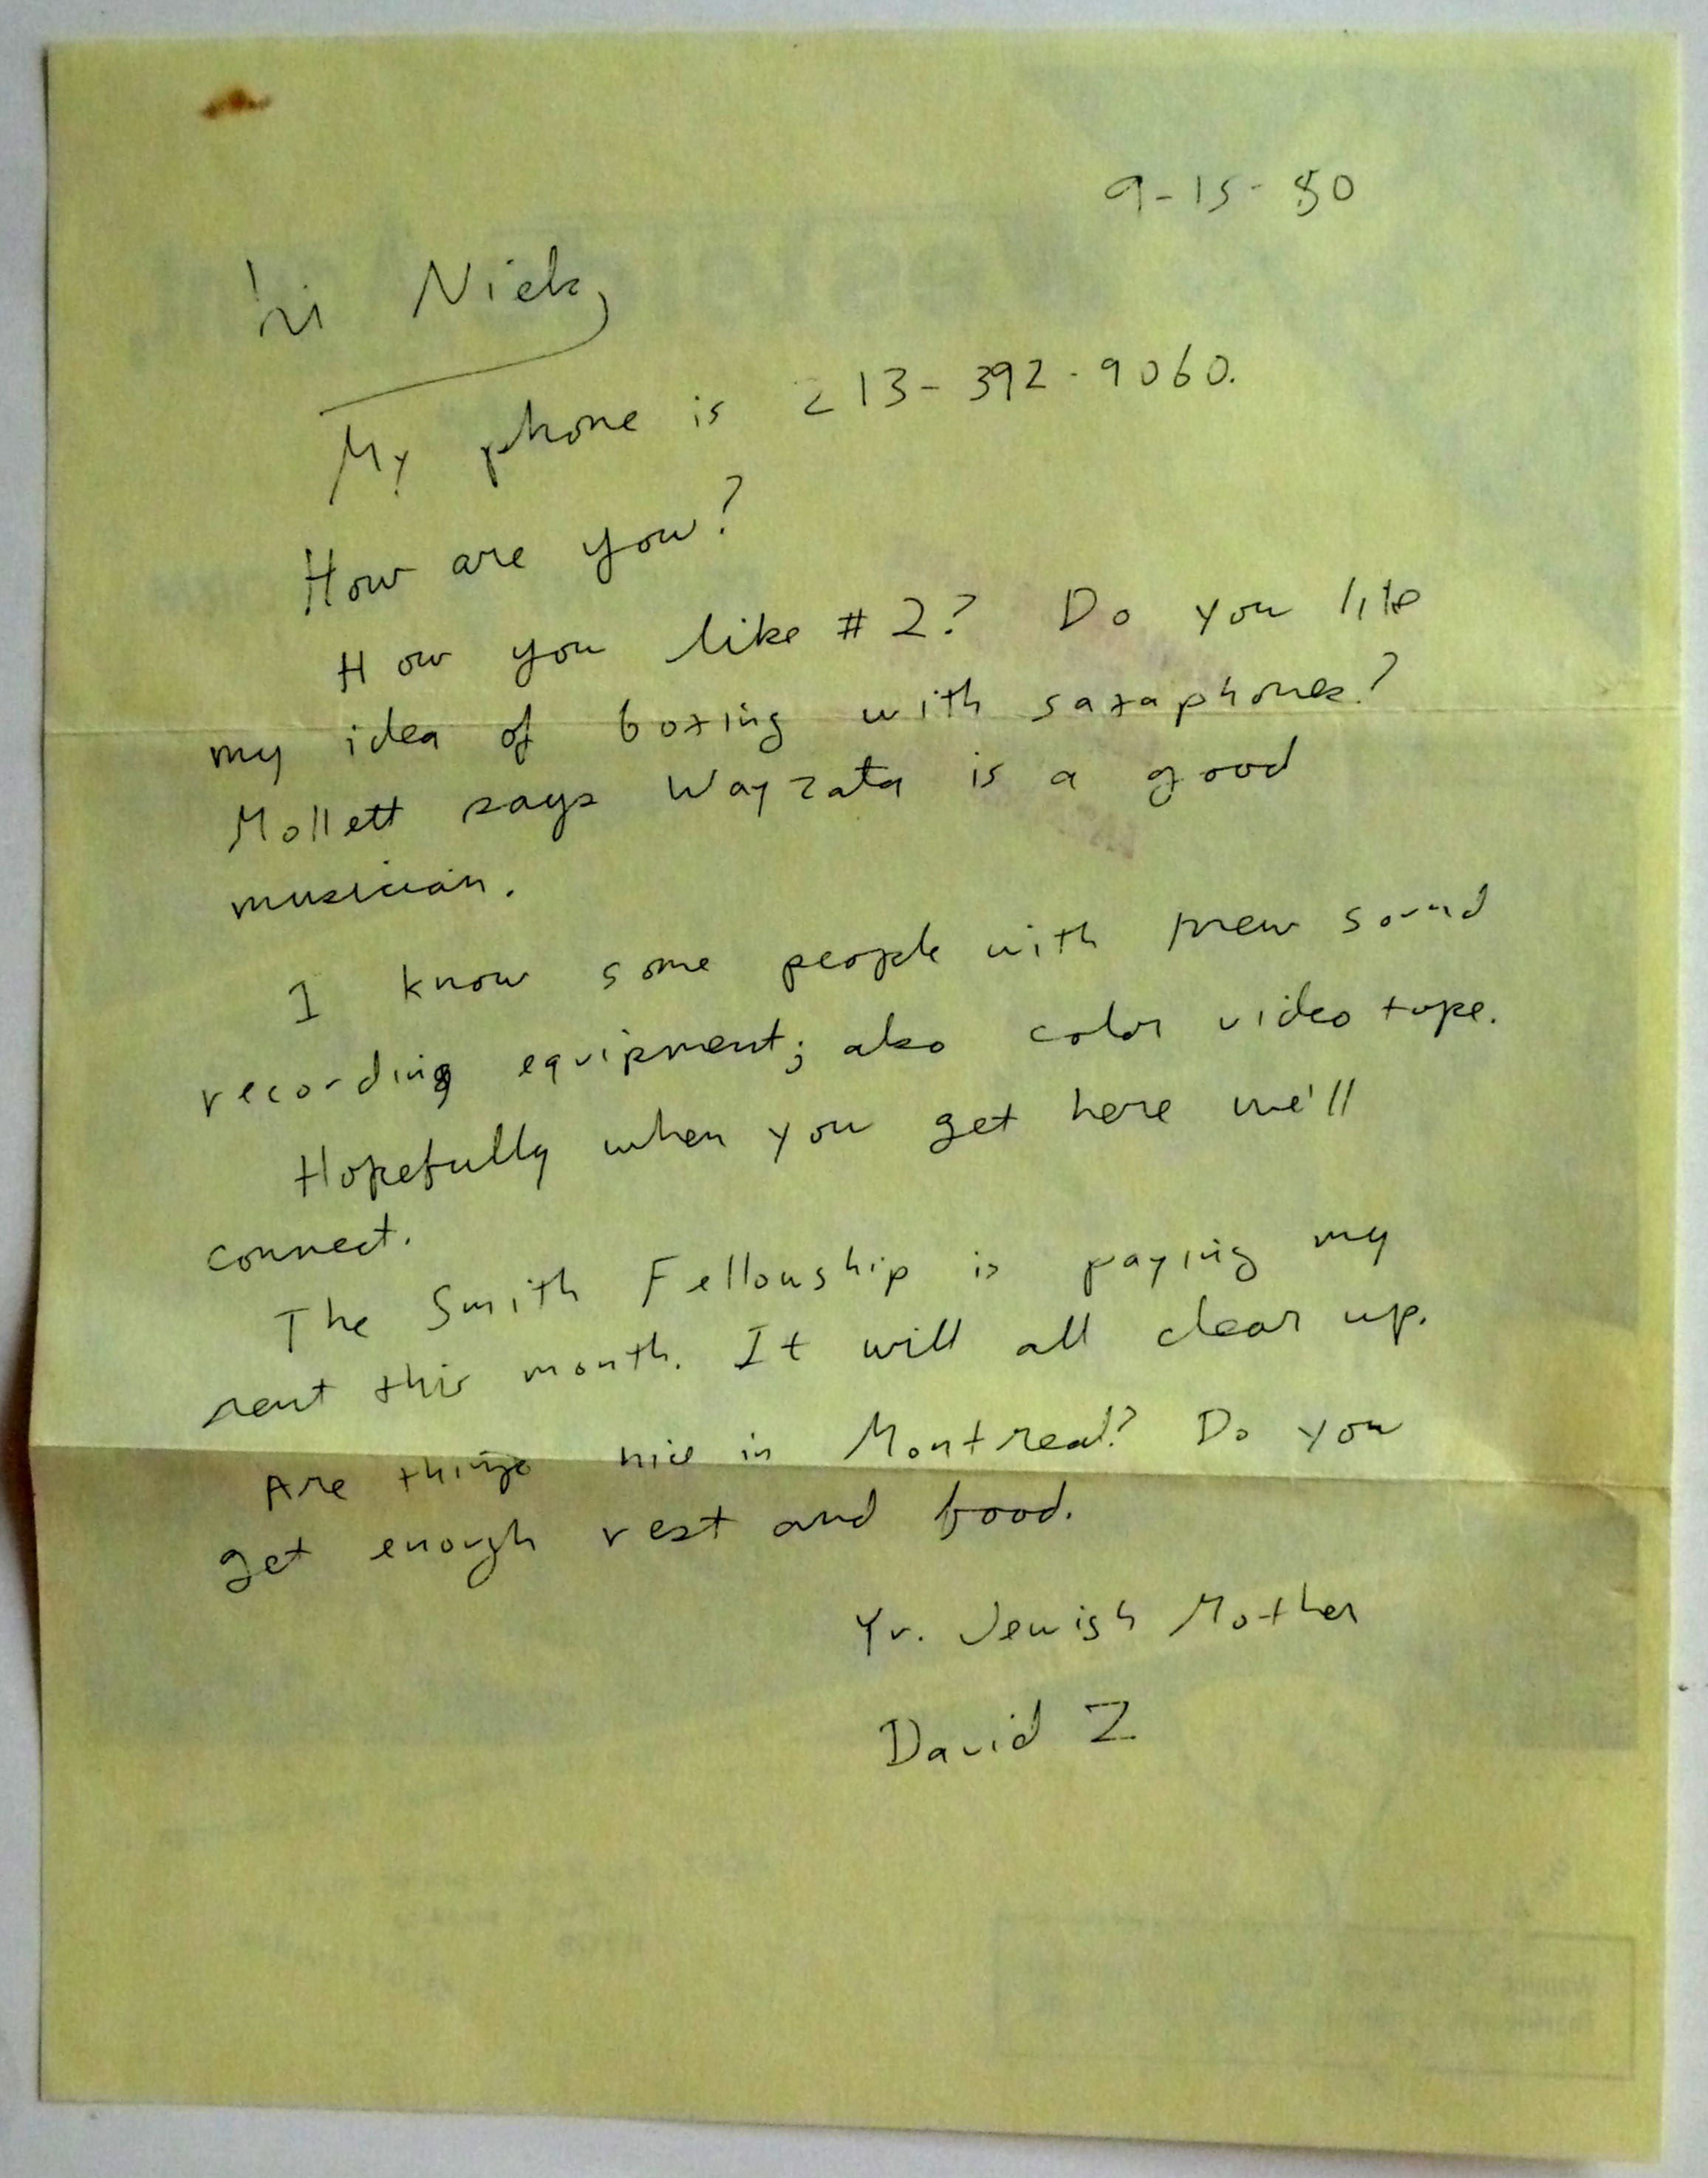 9-15-80
Hi Nick,
My phone is 213-392-9060.
How are you?
How you like #2? Do you like
my idea of boxing with saxaphones?
Mollett says Wayzata is a good
musician.
I know some people with new sound
recording equipment; also color video tape.
Hopefully when you get here we'll
connect.
The Smith Fellowship is paying my
rent this month. It will all clear up.
Are things nice in Montreal? Do you
get enough rest and food.
Yr. Jewish Mother
David Z